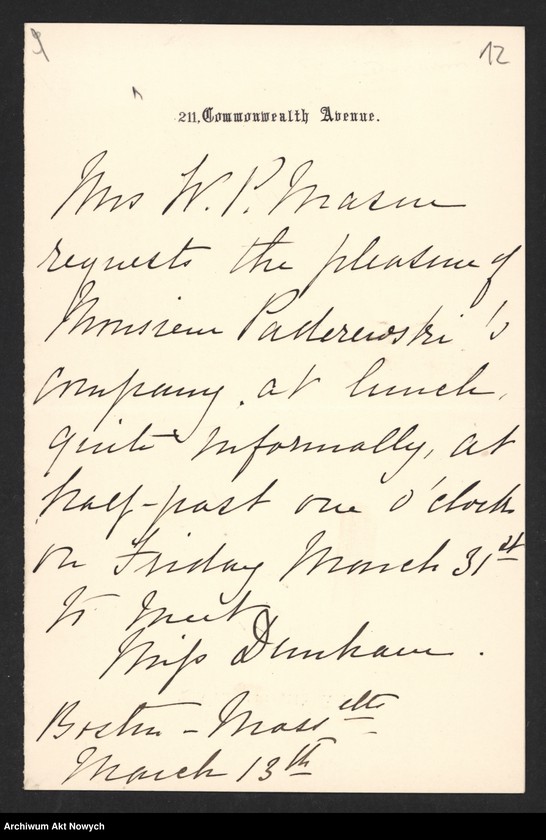 9
12
211, Commonwealth Avenue.
Mrs W. P. Mason
requests the pleasure of
Monsieur Paderewski's
company, at lunch,
quite informally, at
half-past one o'clock
on Friday March 31st
to meet
Miss Dunham.
Boston - Massetts
March 13th
Archiwum Akt Nowych